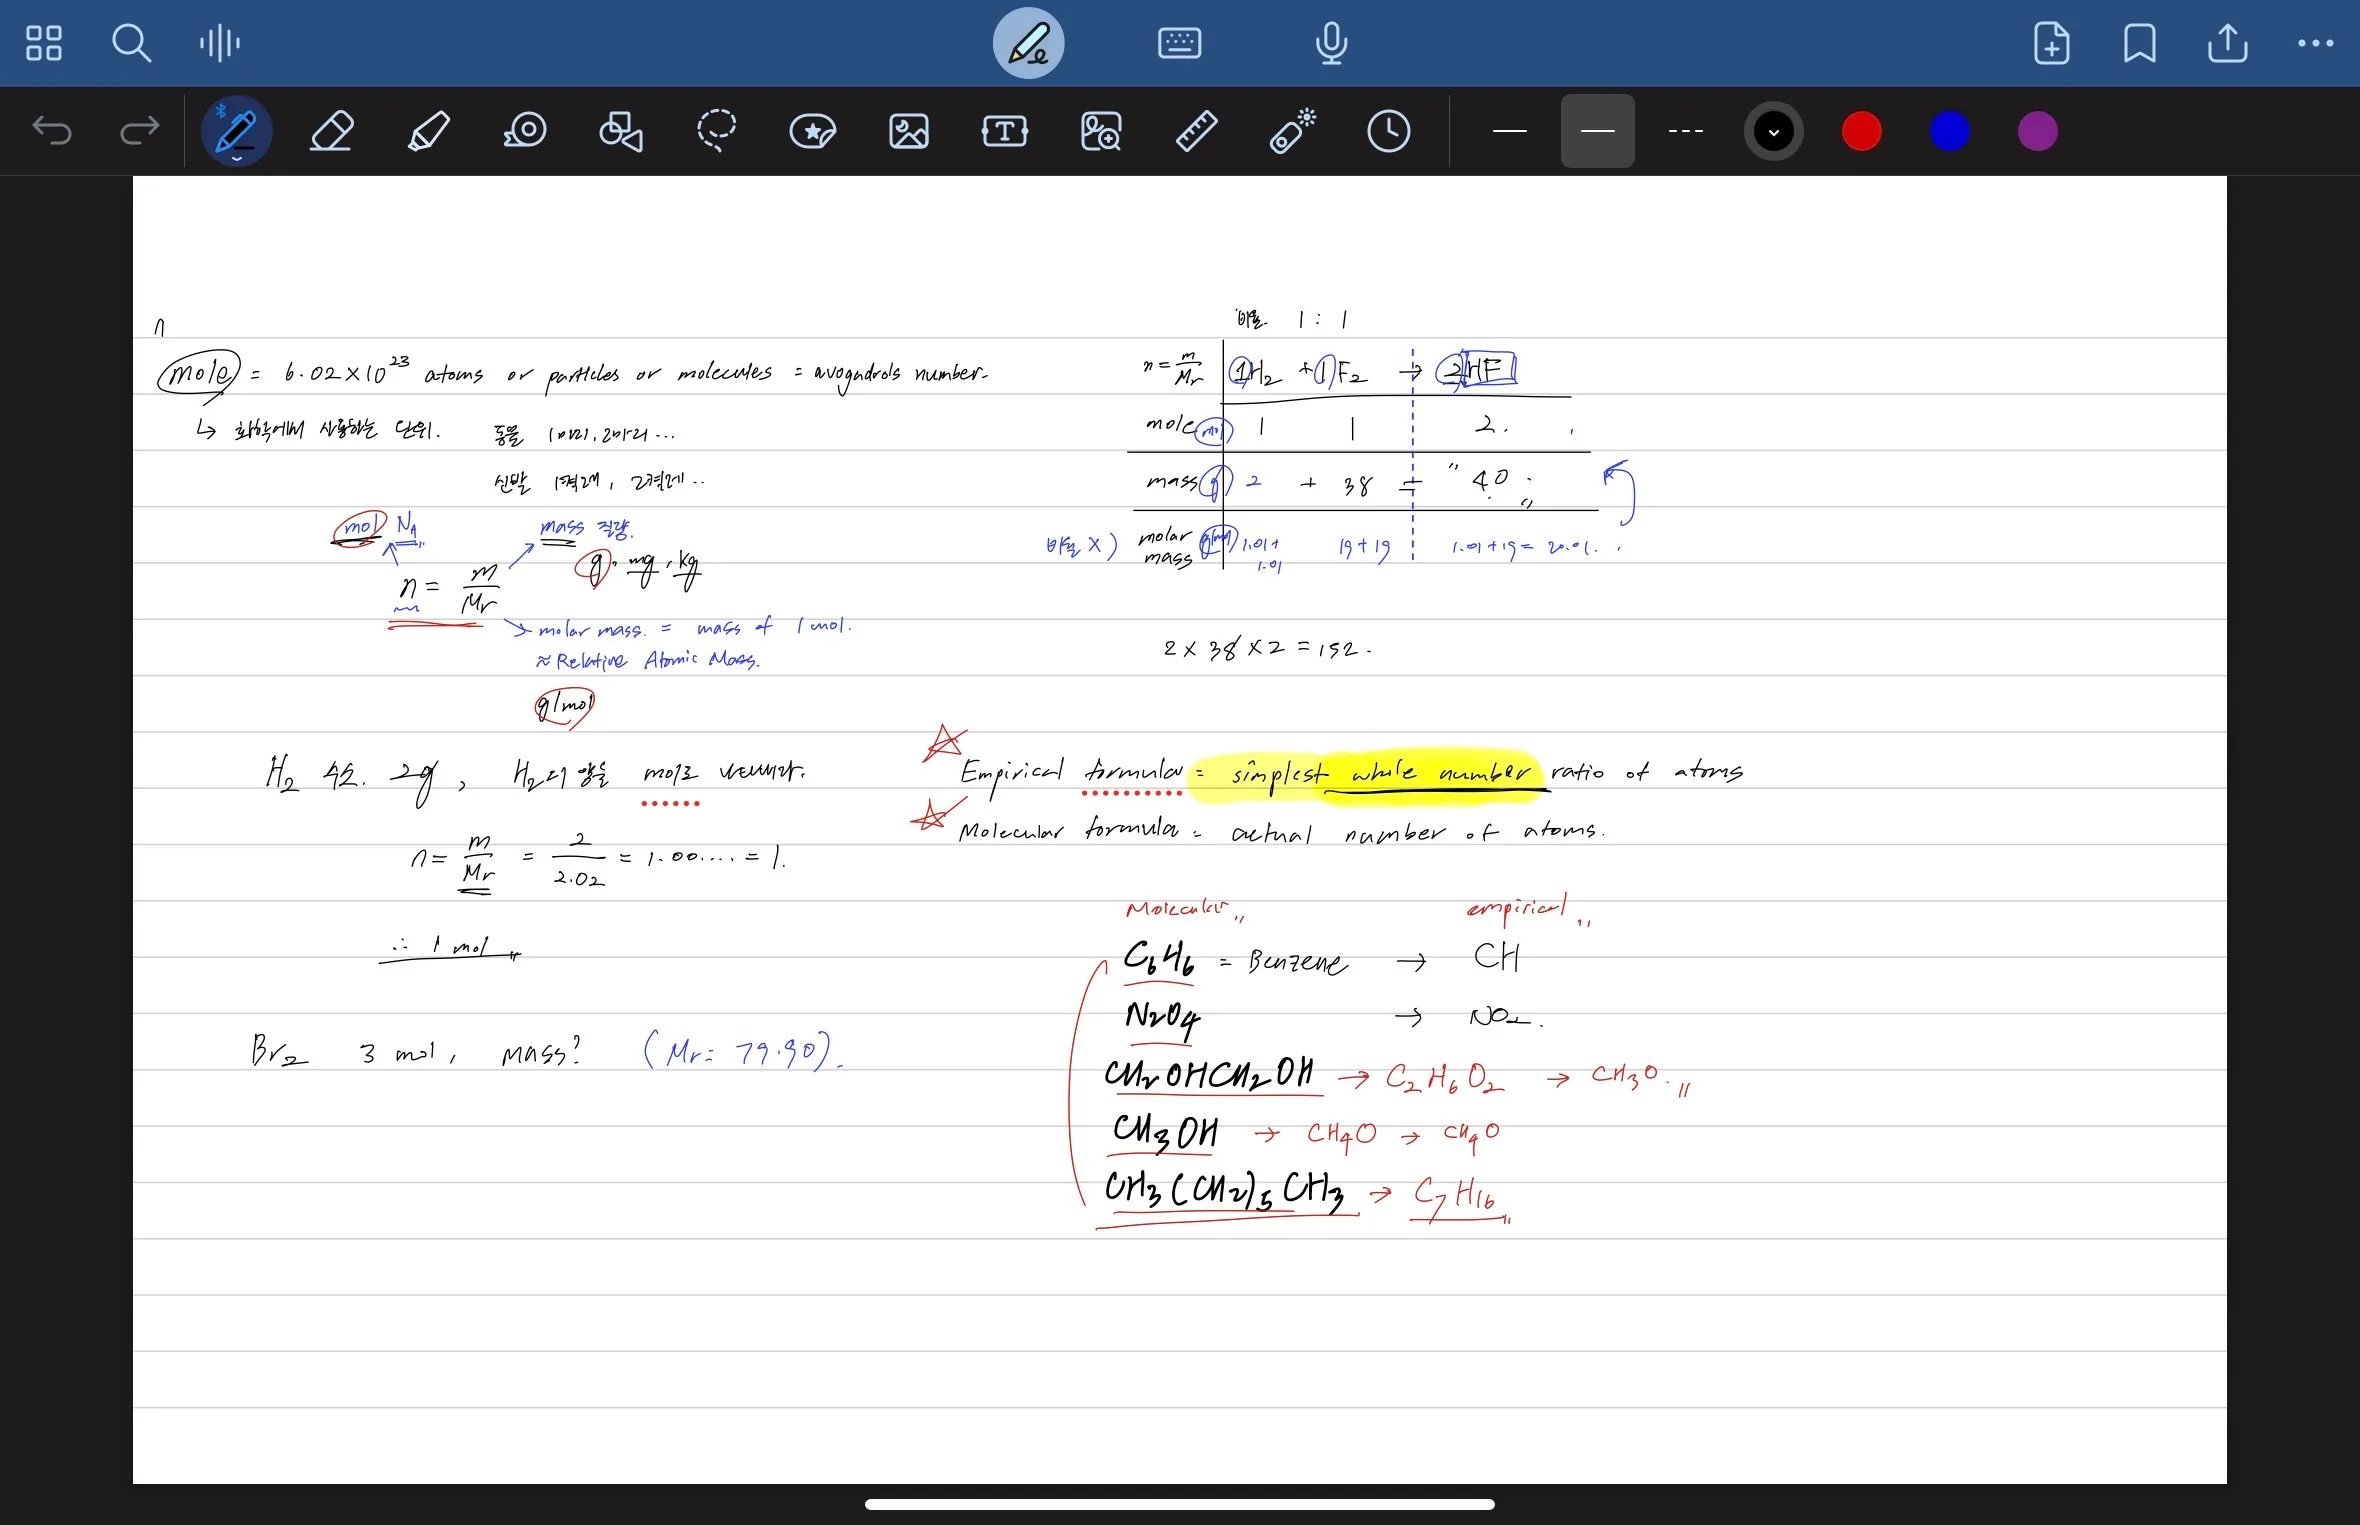 n
mole = 6.02×10²³ atoms or particles or molecules = avogadrols number.
↳ 화학에서 사용하는 단위. 동물 1마리, 2마리...
신발 1켤레, 2켤레..
mol N_A mass 질량.
g, mg, kg
n = m/Mr
molar mass. = mass of 1 mol.
≈ Relative Atomic Mass.
g/mol
H₂ 수소. 2g, H₂의 양을 mol로 나타내라.
n = m/Mr = 2/2.02 = 1.00.... = 1.
∴ 1 mol
Br₂ 3 mol, mass? (Mr= 79.90).
비율. 1 : 1
n = m/Mr 1H₂ + 1F₂ → 2HF
mole mol 1 1 2.
mass g 2 + 38 = 40
비율 X) molar mass g/mol 1.01+1.01 19+19 1.01+19= 20.01.
2 × 38 × 2 = 152.
Empirical formula = simplest whole number ratio of atoms
Molecular formula = actual number of atoms.
Molecular empirical
C₆H₆ = Benzene → CH
N₂O₄ → NO₂.
CH₂OHCH₂OH → C₂H₆O₂ → CH₃O.
CH₃OH → CH₄O → CH₄O
CH₃(CH₂)₅CH₃ → C₇H₁₆